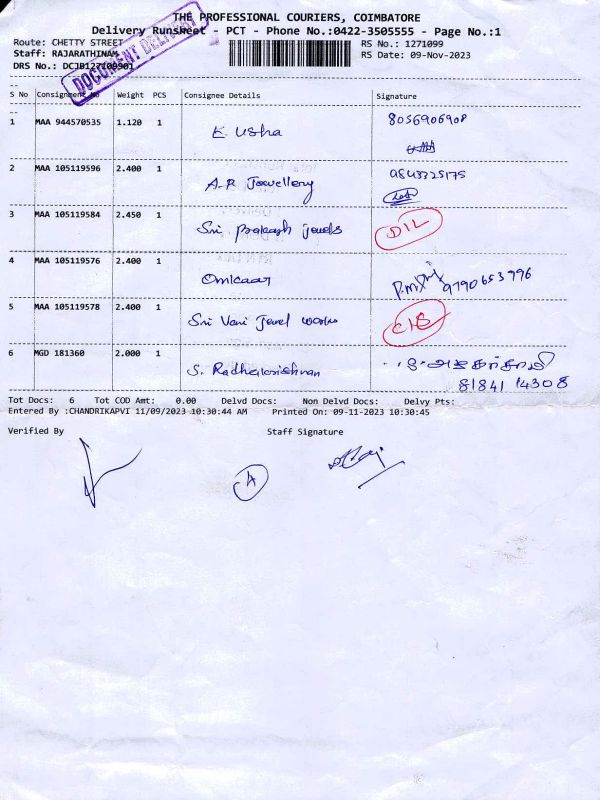 THE PROFESSIONAL COURIERS, COIMBATORE
Delivery Runsheet - PCT - Phone No.:0422-3505555 - Page No.:1
Route: CHETTY STREET RS No.: 1271099
Staff: RAJARATHINAM RS Date: 09-Nov-2023
DRS No.: DCJB127109901
DOCUMENT DELIVERY
S No Consignment No Weight PCS Consignee Details Signature
1 MAA 944570535 1.120 1 K. Usha 8056906908
2 MAA 105119596 2.400 1 A.R Jewellery 9843725175
3 MAA 105119584 2.450 1 Sri Prakash jewels D/L
4 MAA 105119576 2.400 1 Omkaar 9790653996
5 MAA 105119578 2.400 1 Sri Vani Jewel works
6 MGD 181360 2.000 1 S. Radhakrishnan
81841 14308
Tot Docs: 6 Tot COD Amt: 0.00 Delvd Docs: Non Delvd Docs: Delvy Pts:
Entered By :CHANDRIKAPVI 11/09/2023 10:30:44 AM Printed On: 09-11-2023 10:30:45
Verified By Staff Signature
A